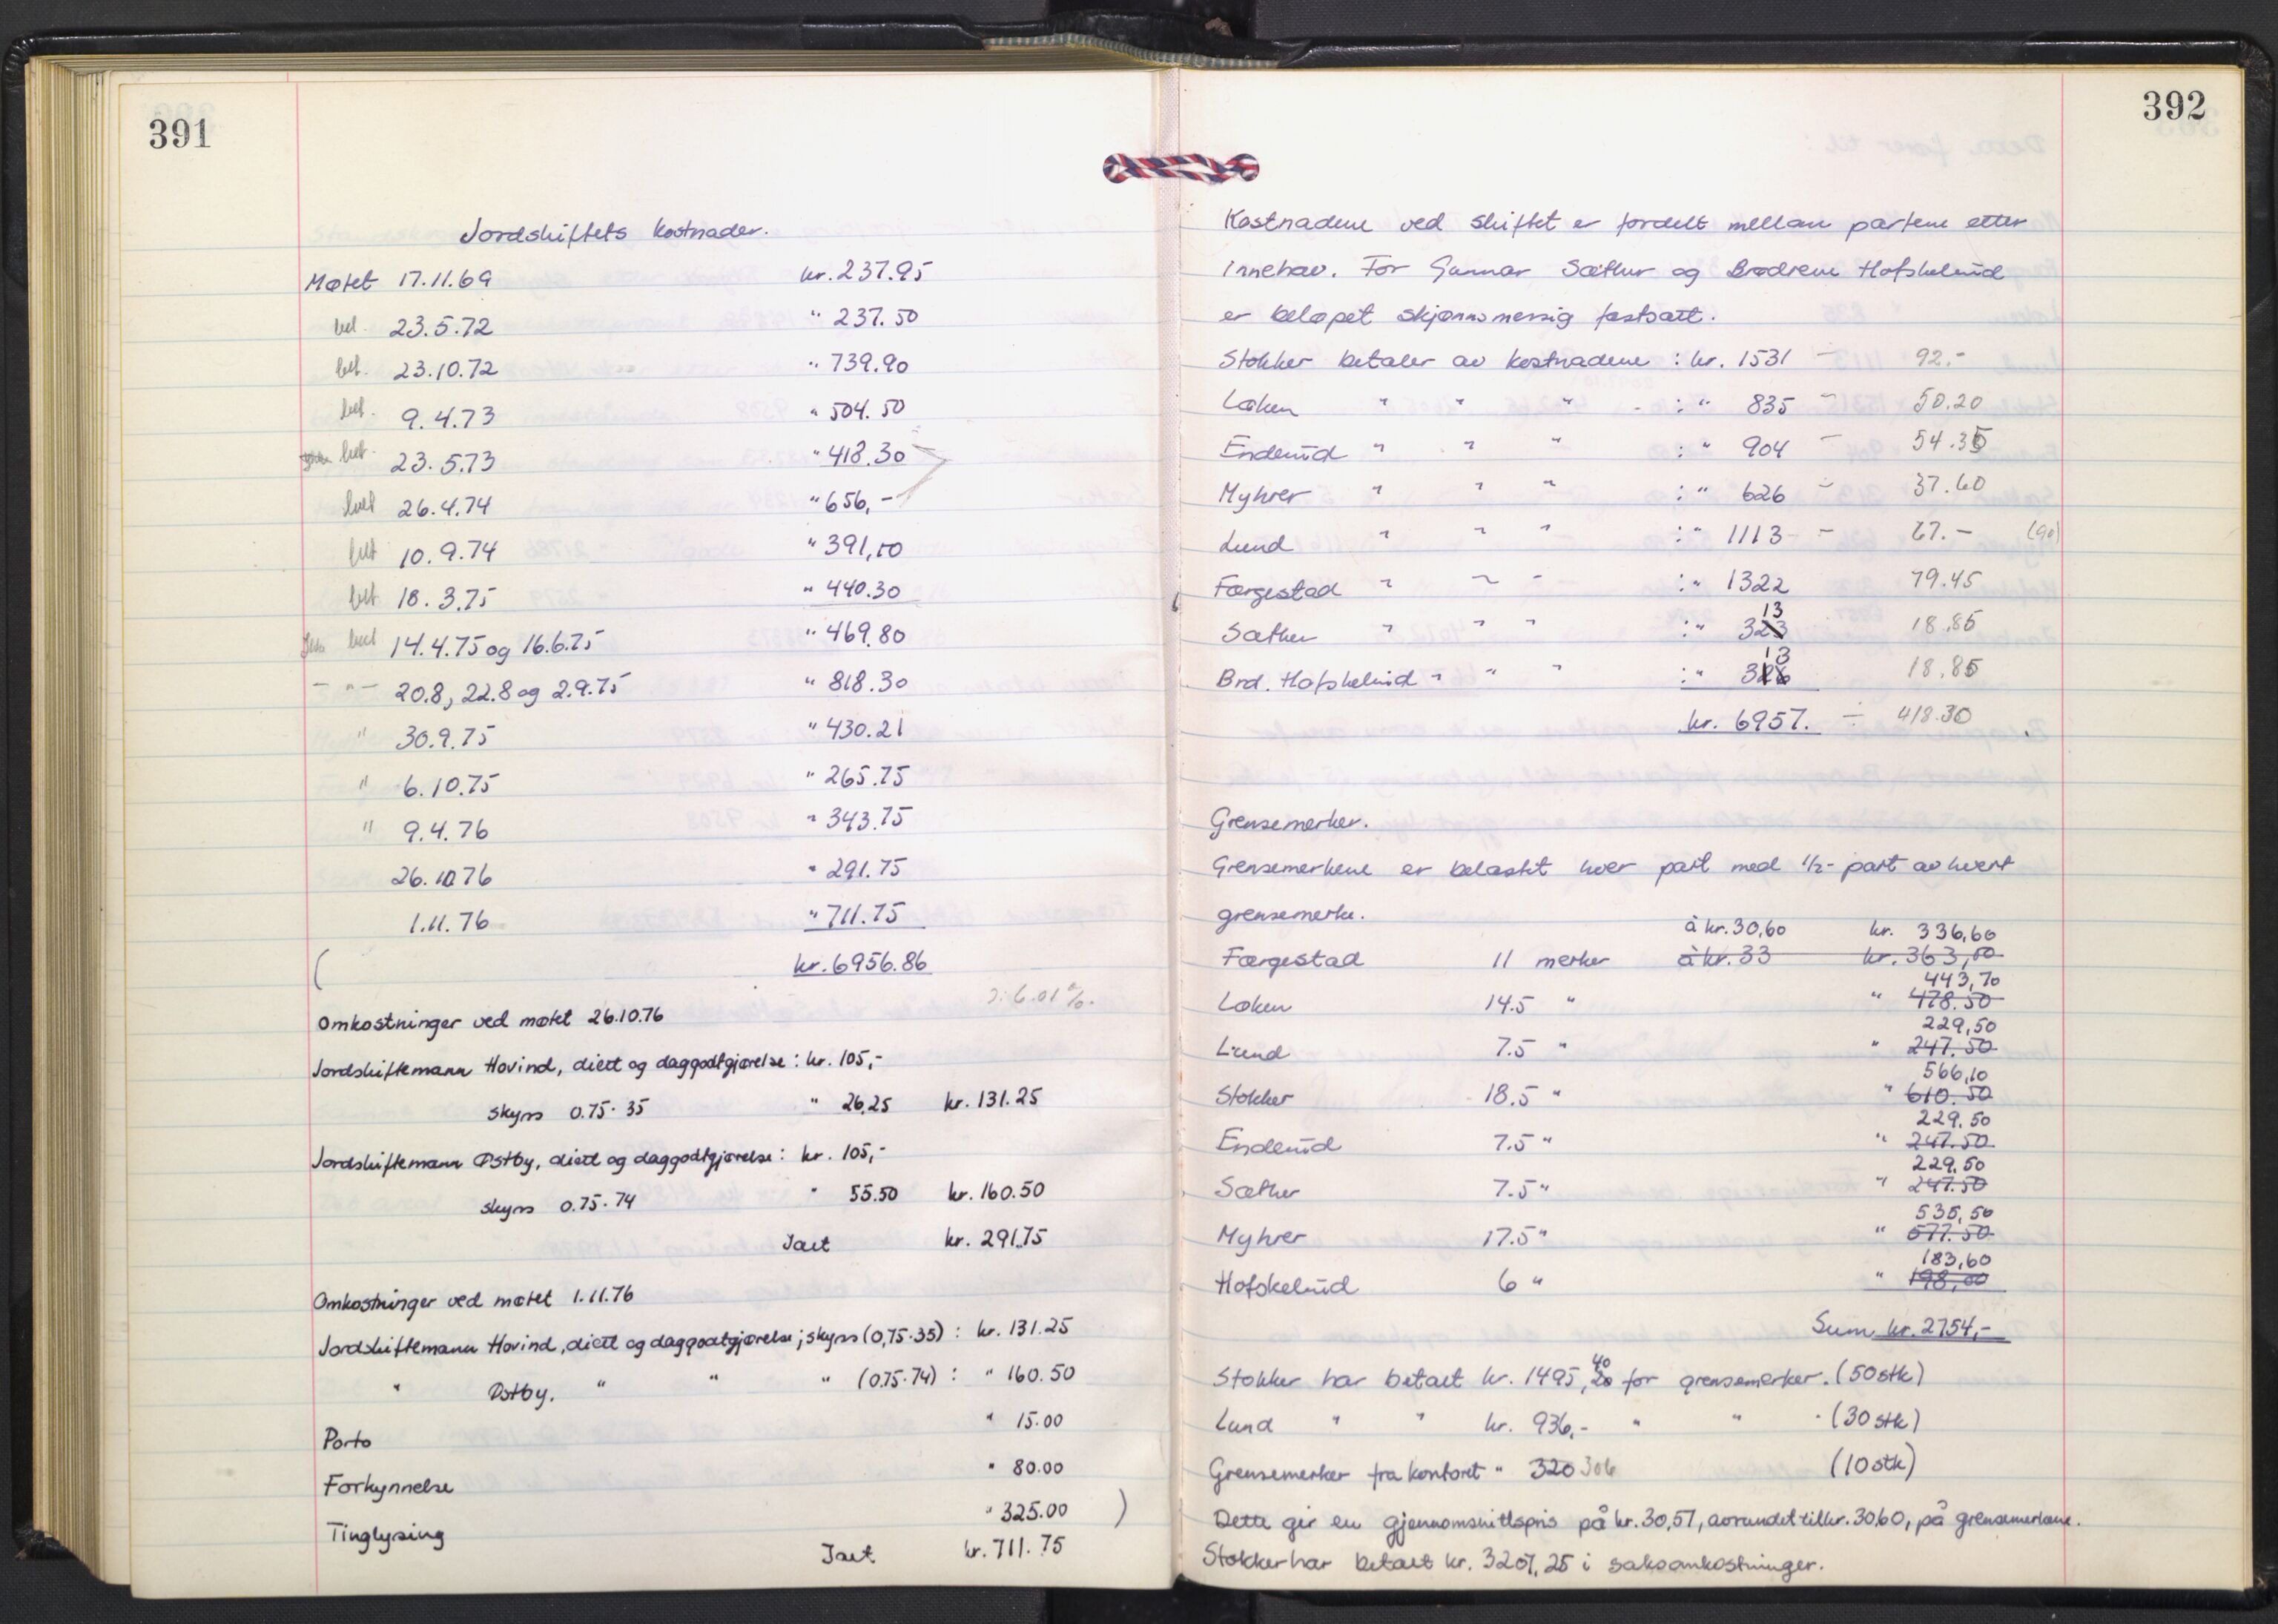 391
Jordskiftets kostnader.
Møtet 17.11.69 kr. 237.95
bet. 23.5.72 " 237.50
bet. 23.10.72 " 739.90
bet. 9.4.73 " 504.50
bet. 23.5.73 " 418.30
bet 26.4.74 " 656,-
bet 10.9.74 " 391,10
bet 18.3.75 " 440.30
bet 14.4.75 og 16.6.75 " 469.80
- " - 20.8, 22.8 og 2.9.75 " 818.30
" 30.9.75 " 430.21
" 6.10.75 " 265.75
" 9.4.76 " 343.75
26.10.76 " 291.75
1.11.76 " 711.75
( kr. 6956.86
ɔ: 6.01 %.
Omkostninger ved møtet 26.10.76
Jordskiftemann Hovind, diett og daggodtgjørelse : kr. 105,-
skyss 0.75 · 35 " 26,25 kr. 131.25
Jordskiftemann Østby, diett og daggodtgjørelse : kr. 105,-
skyss 0.75 · 74 " 55.50 kr. 160.50
Ialt kr. 291.75
Omkostninger ved møtet 1.11.76
Jordskiftemann Hovind, diett og daggodtgjørelse; skyss (0,75·35) : kr. 131.25
" Østby, " " " (0.75·74) : " 160.50
Porto " 15.00
Forkynnelse " 80.00
Tinglysing " 325.00 )
Ialt kr. 711.75
392
Kostnadene ved skiftet er fordelt mellom partene etter
innehav. For Gunnar Sæther og Brødrene Hofskelrud
er beløpet skjønnsmessig fastsatt.
Stokker betaler av kostnadene : kr. 1531 - 92.-
Løken " " " : " 835 - 50.20
Enderud " " " : " 904 - 54.35
Myhrer " " " : " 626 - 37.60
Lund " " " : " 1113 - 67.- (90)
Færgestad " " " : " 1322 79.45
13
Sæther " " " : " 323 18.85
13
Brd. Hofskelrud " " " : " 326 18.85
kr. 6957. ÷ 418.30
Grensemerker.
Grensemerkene er belastet hver part med 1/2-part av hvert
grensemerke.
à kr. 30,60 kr. 336,60
Færgestad 11 merker à kr. 33 kr. 363,00
443,70
Løken 14.5 " " 478.50
229,50
Lund 7.5 " " 247.50
566,10
Stokker 18.5 " " 610.50
229,50
Enderud 7.5 " " 247.50
229,50
Sæther 7.5 " " 247.50
535,50
Myhrer 17.5 " " 577.50
183,60
Hofskelrud 6 " " 198,00
Sum kr. 2754,-
40
Stokker har betalt kr. 1495,20 for grensemerker. (50 stk)
Lund " " kr. 936,- " " . (30 stk)
Grensemerker fra kontoret " 320 306 (10 stk)
Dette gir en gjennomsnittspris på kr. 30,57, avrundet til kr. 30,60, på grensemerkene.
Stokker har betalt kr. 3207,25 i saksomkostninger.